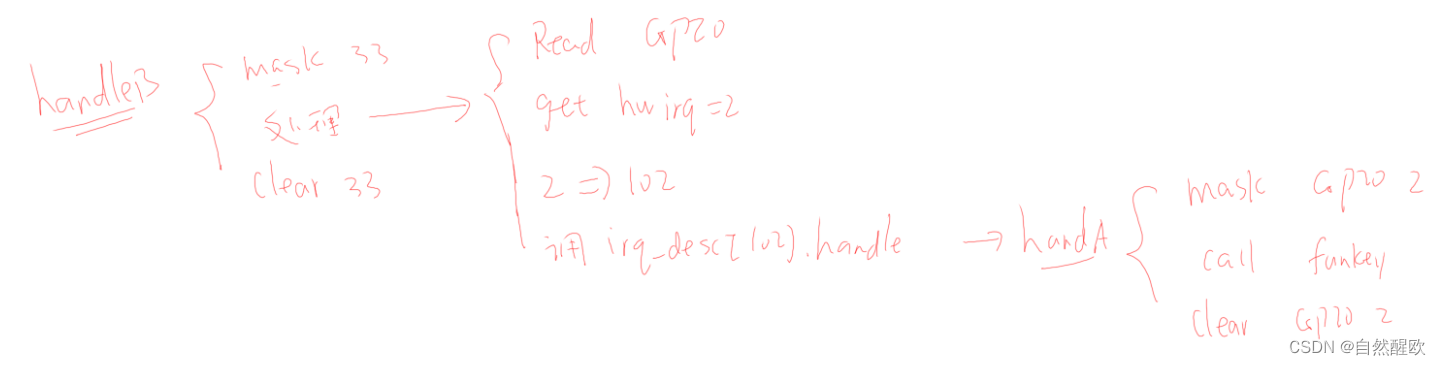 handleB
mask 33
处理
clear 33
Read GPIO
get hwirq=2
2 => 102
调 irq_desc[102].handle
handA
mask GPIO 2
call funkey
clear GPIO 2
CSDN @自然醒欧